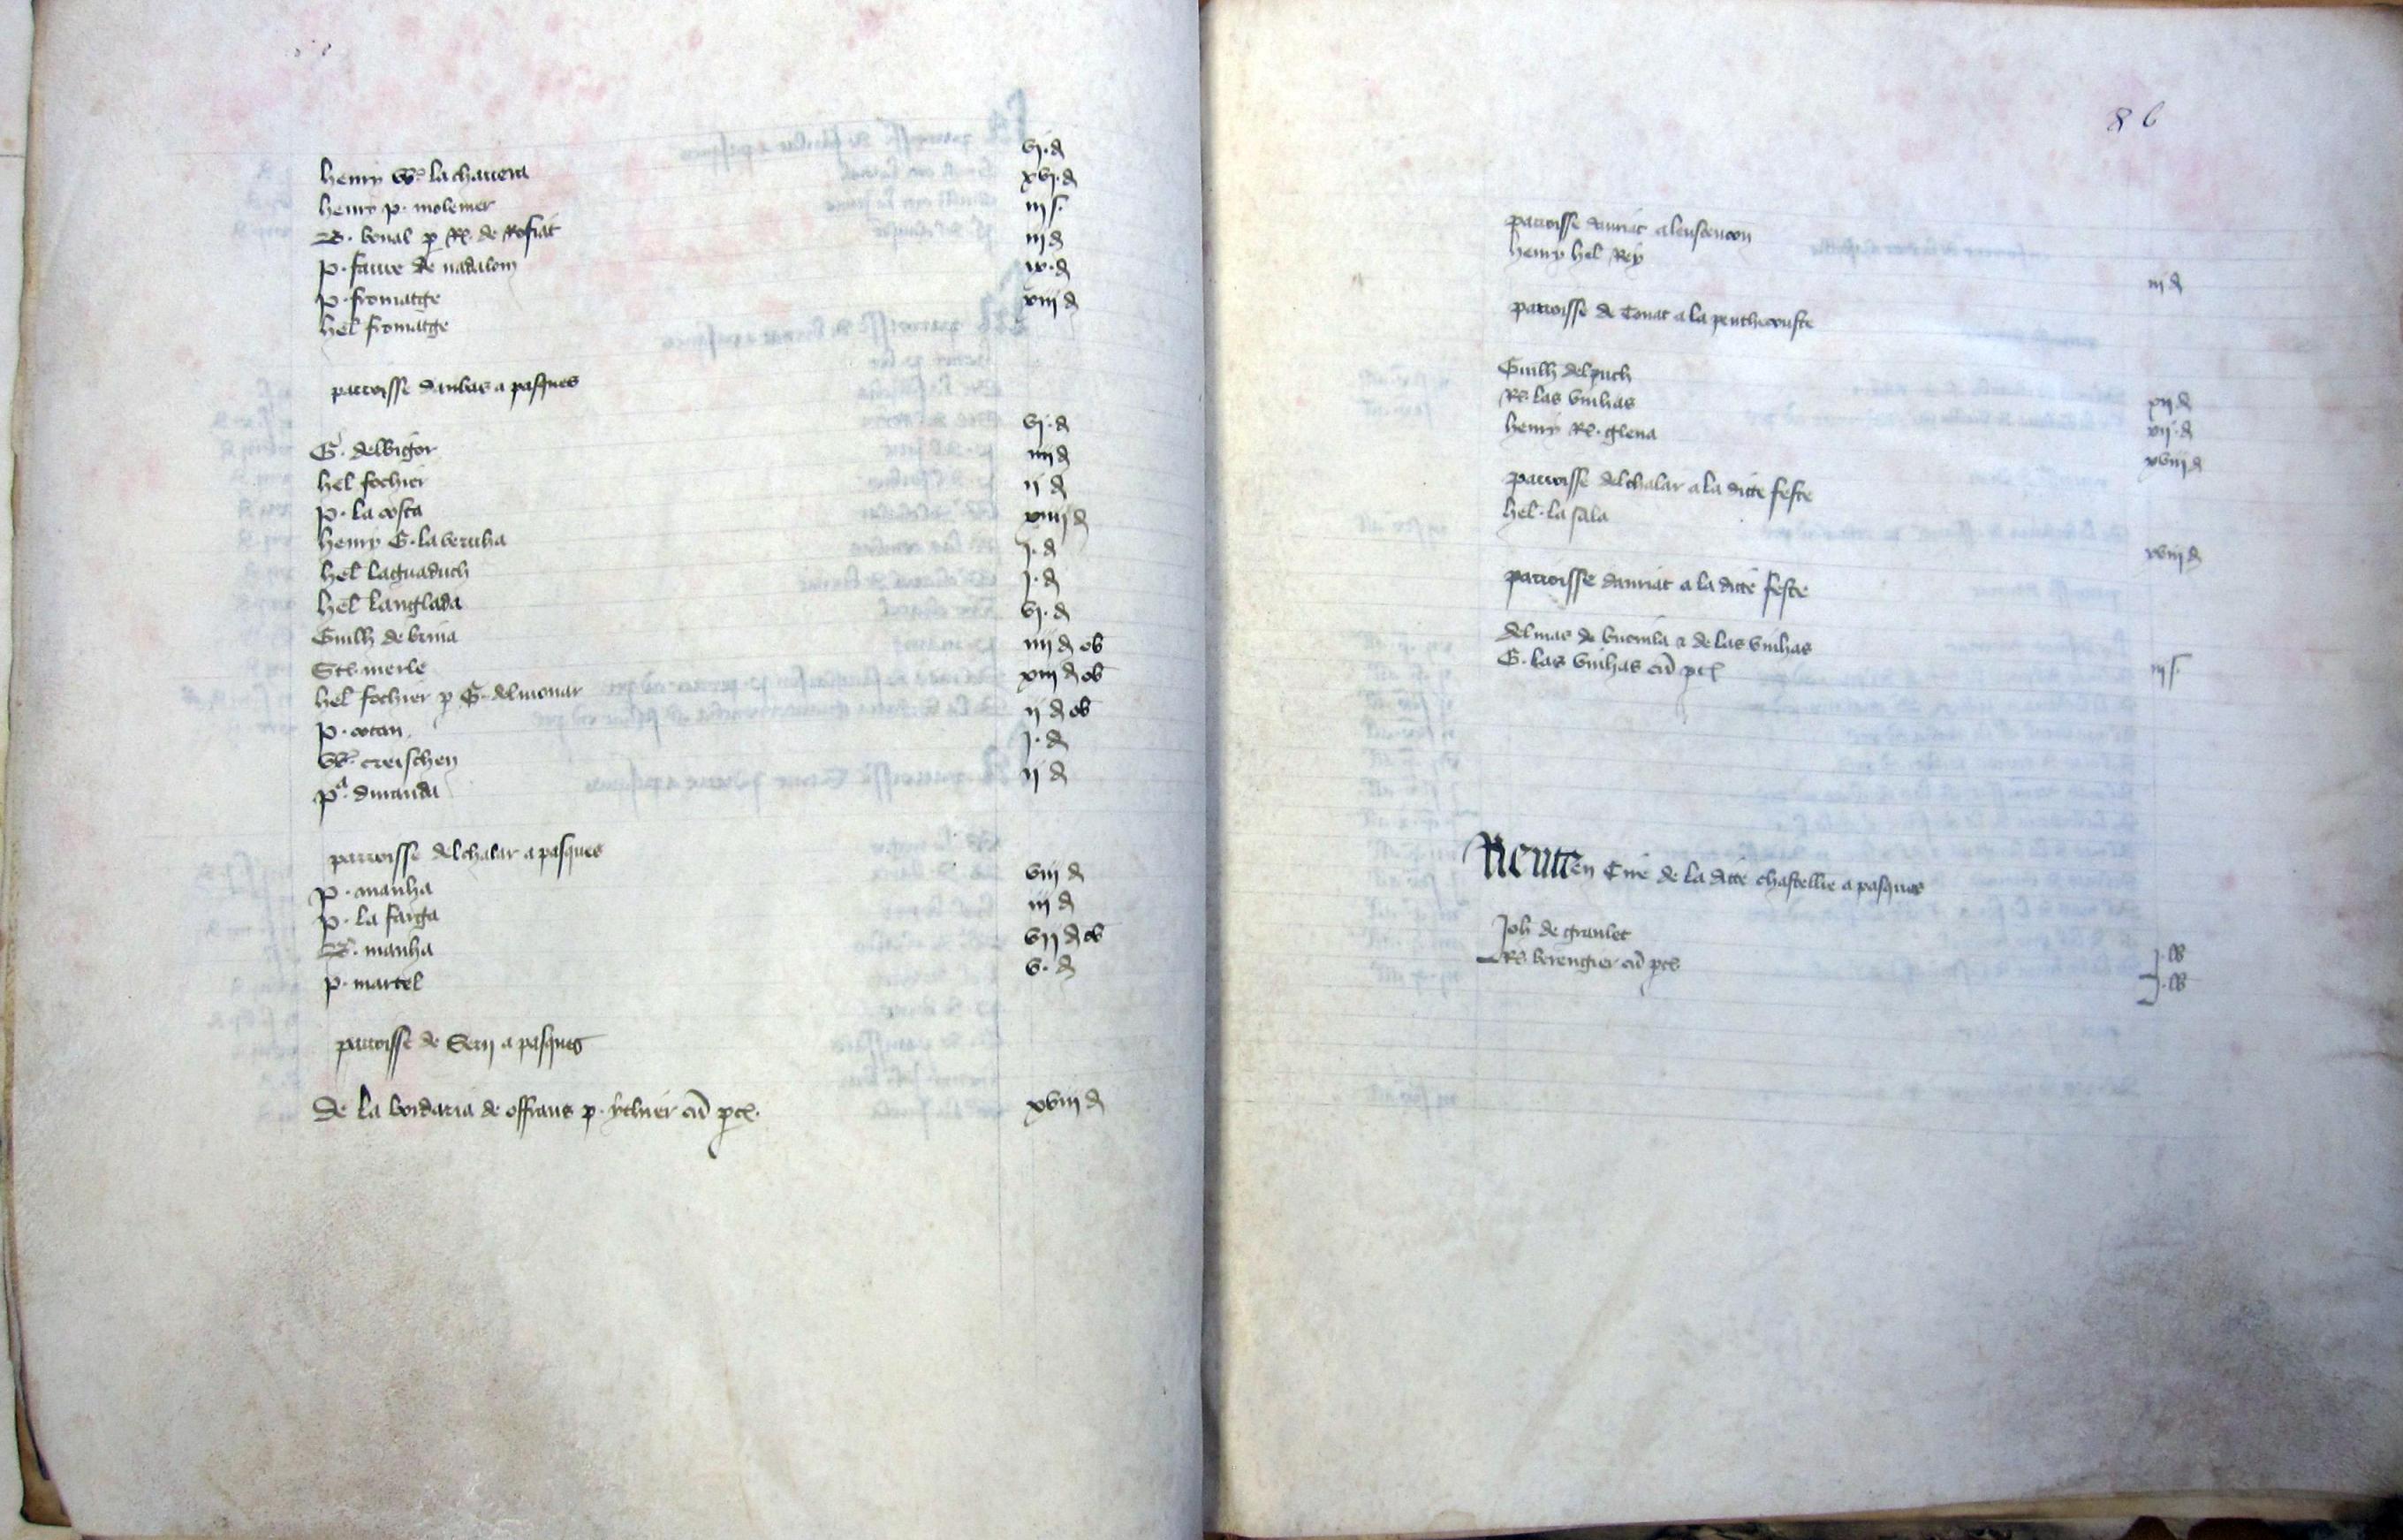 henry W. la chauena vj. d
henry p. molemer xvj. d
B. bonal p R. de Rofiat iij s.
p. faure de nadalom iij d
p. fromatge ix. d
hel fromatge viij d
parroisse danlas a pasques
G. delbigor vj. d
hel fochier iiij d
p. la costa ij d
henry G. la bernha xiiij d
hel laguaduch j. d
hel langlada j. d
Guilh de bruia vj. d
Ste. merle iiij d ob
hel fochier p G. delmonar xiij d ob
p. cotan ij d ob
W. creischen j. d
pa. duranda ij d
parroisse delchalar a pasques
p. manha viij d
p. la farga iij d
B. manha vij d ob
p. martel v. d
parroisse de Serij a pasques
De la bordaria de offrans p. ythier cū pcl. xviij d
86
parroisse dauriac alensencion
henry hel Rey iij d
parroisse de Tonac a la penthecouste
Guilh delpuch xij d
R. las vinhas vij. d
henry R. glena xviij d
parroisse delchalar a la dicte feste
hel. la sala xviij d
parroisse dauriac a la dicte feste
del mas de bucinla z de las vinhas
G. las vinhas cū pcl iij s.
Rente en Cire de la dite chastellie a pasques
Joh de granlet j. lb
R. berengier cū pcl j. lb